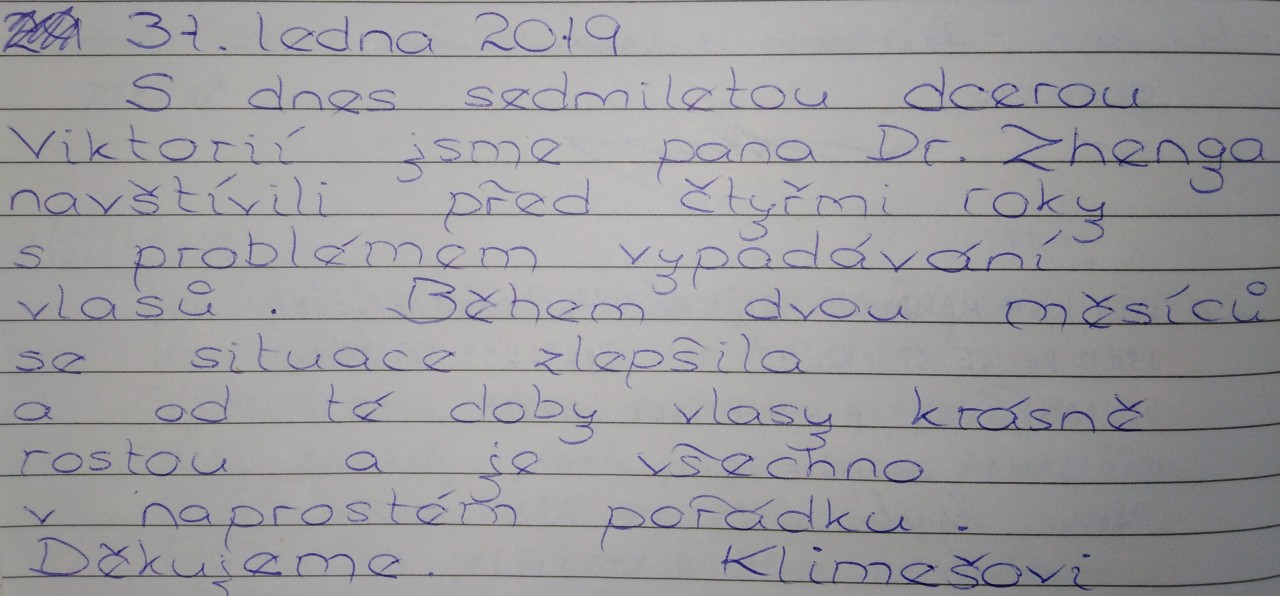 31. ledna 2019
S dnes sedmiletou dcerou
Viktorií jsme pana Dr. Zhenga
navštívili před čtyřmi roky
s problémem vypadávání
vlasů. Během dvou měsíců
se situace zlepšila
a od té doby vlasy krásně
rostou a je všechno
v naprostém pořádku.
Děkujeme. Klimešovi